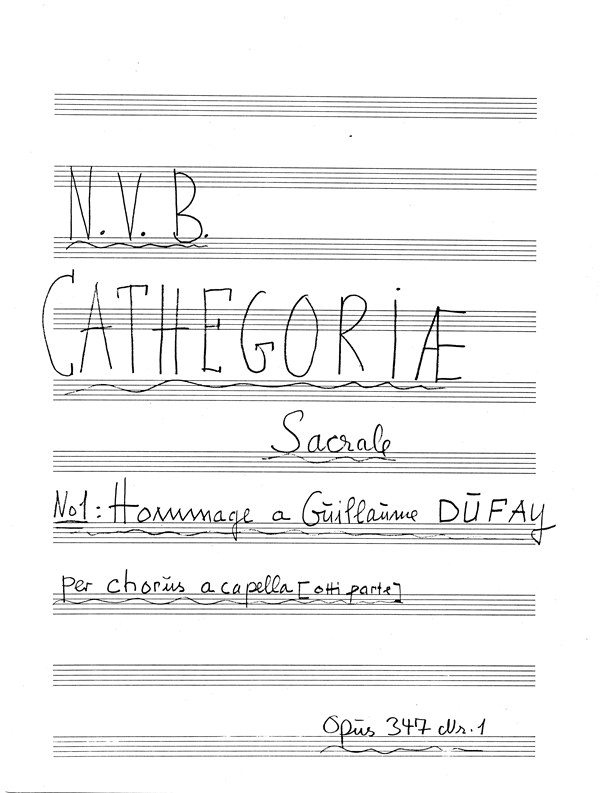 N.V.B.
CATHEGORIÆ
Sacrale
No1: Hommage a Gūillaūme DŪFAY
per chorūs a capella [otti parte]
Opūs 347 Nr. 1